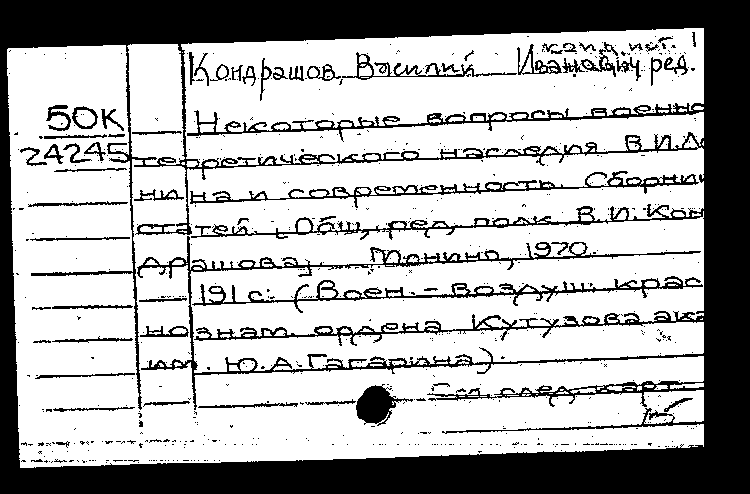 канд. ист. 1
Кондрашов, Василий Иванович, ред.
50К Некоторые вопросы военно
24245 теоретического наследия В.И.Ле
нина и современность. Сборник
статей. [Общ. ред. полк. В.И. Кон
драшова]. Монино, 1970.
191 с. (Воен.-воздуш. крас
нознам. ордена Кутузова ака
им. Ю.А.Гагарина).
См. след. карт.